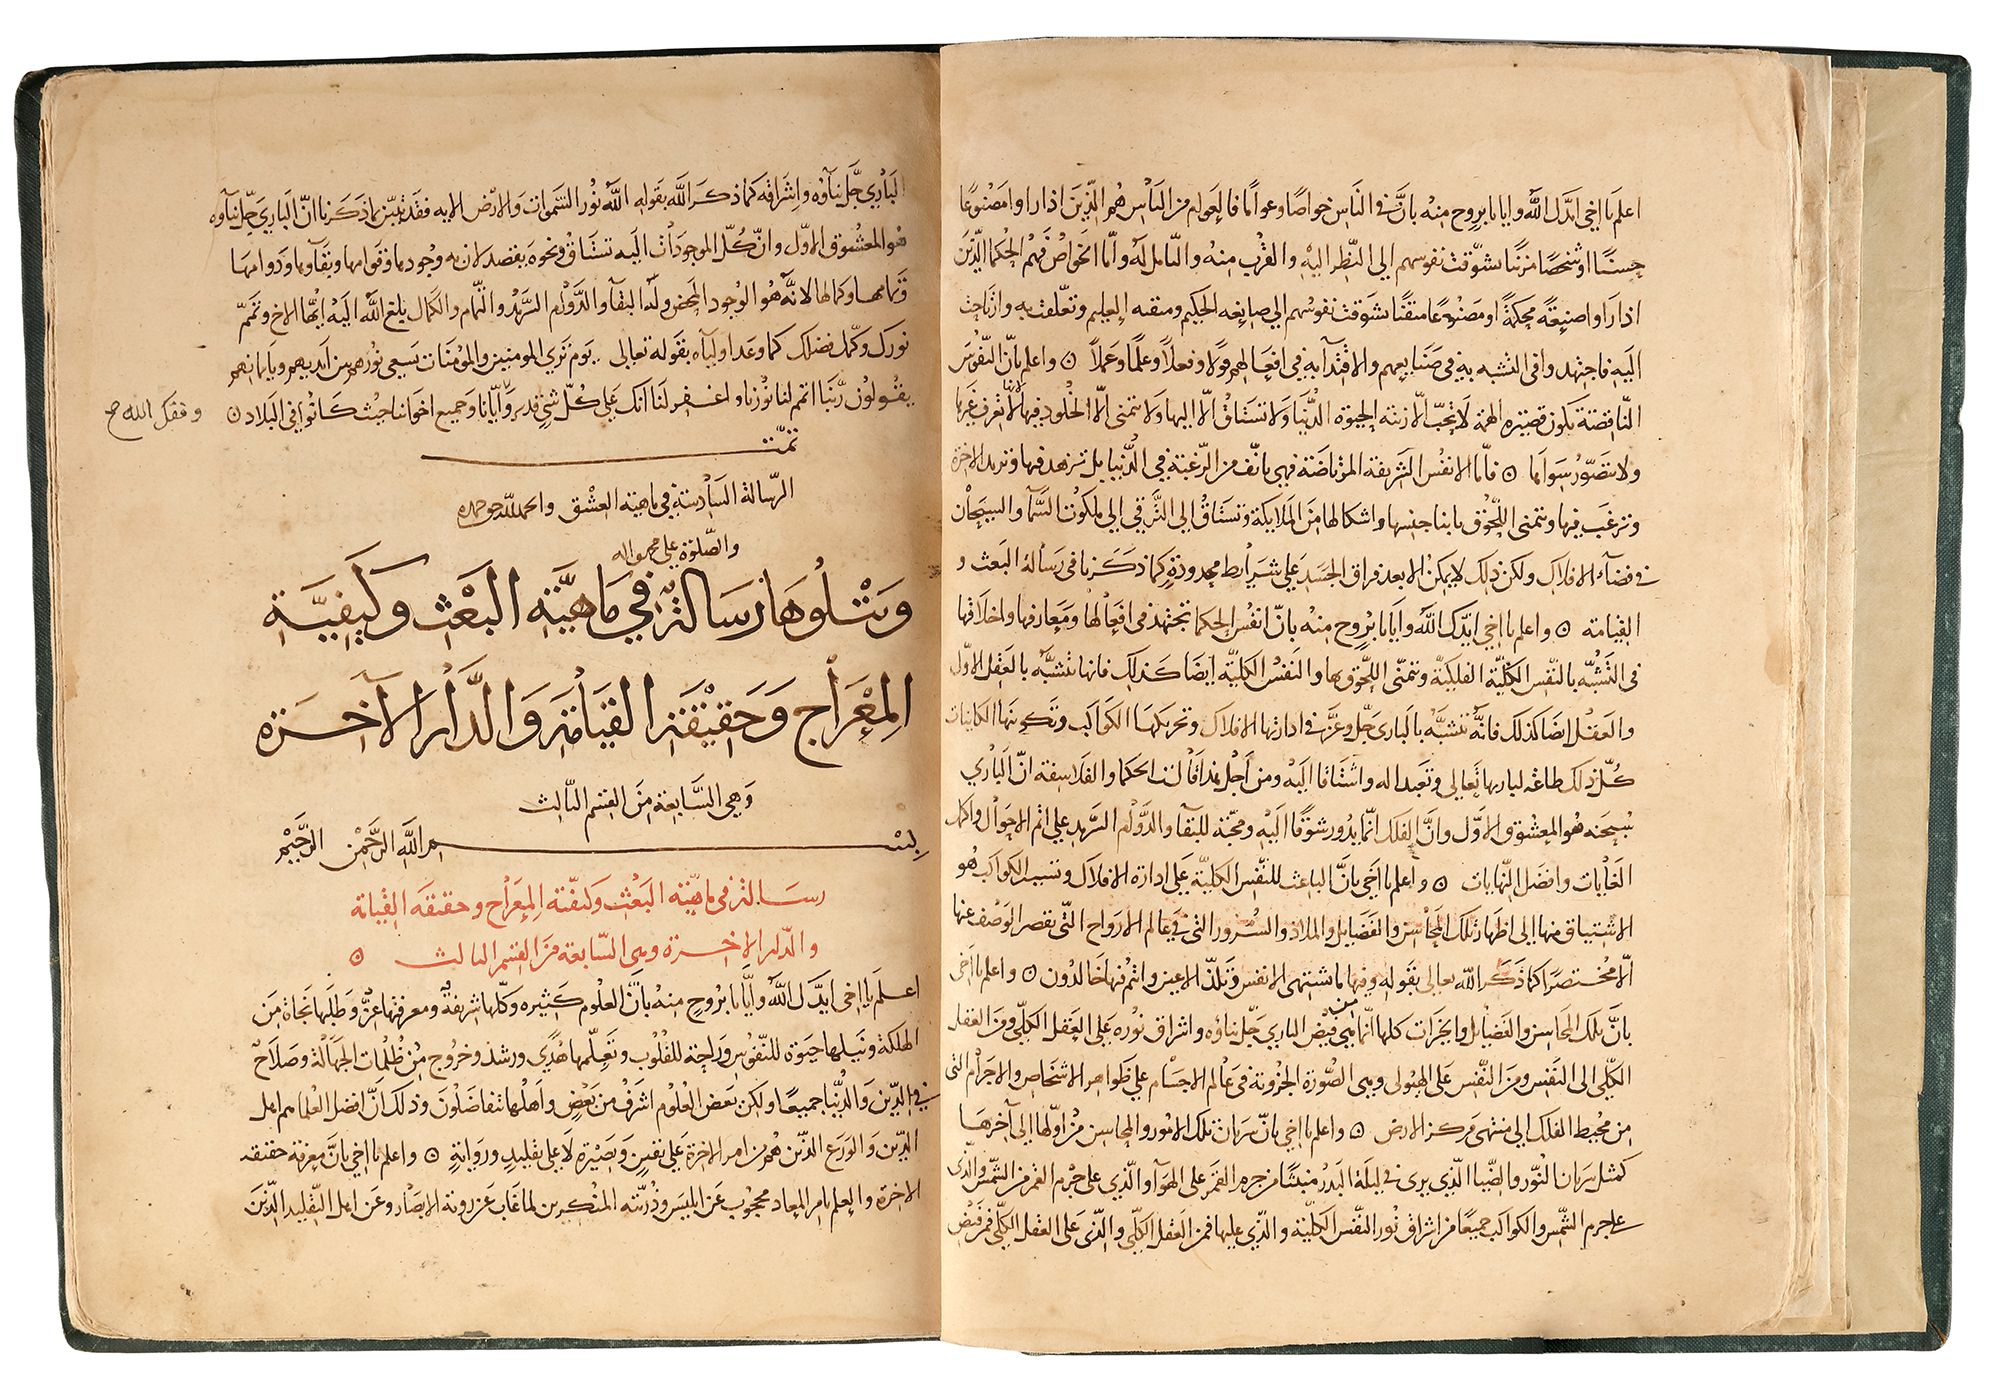 اعلم يا اخي ايدك الله وايانا بروح منه بان في الناس خواصا وعواما فالعوام من الناس هم الذين اذا راوا مصنوعا
حسنا او شخصا مزينا تشوقت نفوسهم الي النظر اليه والقرب منه والتامل له واما الخواص فهم الحكما الذين
اذا راوا صنيعة محكمة او مصنوعا متقنا تشوقت نفوسهم الي صانعه الحكيم ومتقنه العليم وتعلقت به وارتاحت
اليه فاجتهدوا في التشبه به في صنايعهم والاقتدآ به في افعالهم قولا وفعلا وعلما وعملا ⊙ واعلم بان النفوس
الناقصة تكون قصيرة الهمة لا تحب الا زينة الحيوة الدنيا ولا تشتاق الا اليها ولا تتمنى الا الخلود فيها لانها لا تعرف غيرها
ولا تتصور سواها ⊙ فاما الانفس الشريفة المرتاضة فهي تانف من الرغبة في الدنيا بل تزهد فيها وتريد الاخرة
وترغب فيها وتتمنى اللحوق بابنا جنسها واشكالها من الملايكة وتشتاق الي الترقي الي ملكوت السمآ والسيحان
في فضآء الافلاك ولكن ذلك لا يمكن الا بعد فراق الجسد علي شرايط محدودة كما ذكرنا في رسالة البعث و
القيامة ⊙ واعلم يا اخي ايدك الله وايانا بروح منه بان انفس الحكما تجتهد في افعالها ومعارفها واخلاقها
في التشبه بالنفس الكلية الفلكية وتتمنى اللحوق بها والنفس الكلية ايضا كذلك فانها تتشبه بالعقل الاول
والعقل ايضا كذلك فانه يتشبه بالباري جل وعز في ادارتها الافلاك وتحريكها الكواكب وتكوينها الكاينات
كل ذلك طاعة لباريها تعالي وتعبدا له واشتياقا اليه ومن اجل هذا قالت الحكما والفلاسفة ان الباري
سبحنه هو المعشوق الاول وان الفلك انما يدور شوقا اليه ومحبة للبقآ والدوام السرمد علي اتم الاحوال واكمل
الغايات وافضل النهايات ⊙ واعلم يا اخي بان الباعث للنفس الكلية علي ادارة الافلاك وتسيير الكواكب هو
الاشتياق منها الي اظهار تلك المحاسن والفضايل والملاذ والسرور التي في عالم الارواح التي يقصر الوصف عنها
الا مختصرا كما ذكر الله تعالي بقوله وفيها ما تشتهي الانفس وتلذ الاعين وانتم فيها خالدون ⊙ واعلم يا اخي
بان تلك المحاسن والفضايل والخيرات كلها انما هي من فيض الباري جل ثناؤه واشراق نوره علي العقل الكلي ومن العقل
الكلي الى النفس ومن النفس على الهيولى وهي الصورة الجزوية في عالم الاجسام علي ظواهر الاشخاص والاجرام التي
من محيط الفلك الي منتهى مركز الارض ⊙ واعلم يا اخي بان سريان تلك الانور والمحاسن من اولها الي آخرها
كمثل سريان النور والضيا الذي يرى في ليلة البدر منبثا من جرم القمر على الهوآ والذي علي جرم القمر من الشمس والذي
علي جرم الشمس والكواكب جميعا من اشراق نور النفس الكلية والذي عليها فمن العقل الكلي والذي على العقل الكلي فمن فيض
الباري جل ثنآوه واشراقه كما ذكر الله بقوله الله نور السموات والارض الايه فقد تبين بما ذكرنا ان الباري جل ثنآوه
هو المعشوق الاول وان كل الموجودات اليه تشتاق ونحوه يقصد لان به وجودها وقوامها وبقآوها ودوامها
وتمامها وكمالها لانه هو الوجود المحض وله البقآ والدوام السرمد والتمام والكمال بلغ الله اليه ايها الاخ وتمم
نورك وكمل فضلك كما وعد اوليآه بقوله تعالي يوم تري المومنين والمؤمنات يسعى نورهم بين ايديهم وبايمانهم
يقولون ربنا اتمم لنا نورنا واغفر لنا انك علي كل شي قدير وايانا وجميع اخواننا حيث كانوا في البلاد ⊙
وفقك الله صح
تمت
الرسالة السادسة في ماهية العشق والحمد لله حق حمده
والصلوة علي محمد واله
وتتلوها رسالة في ماهية البعث وكيفية
المعراج وحقيقة القيامة والدار الآخرة
وهي السابعة من القسم الثالث
بسم الله الرحمن الرحيم
رسالة في ماهية البعث وكيفية المعراج وحقيقة القيامة
والدار الاخرة وهي السابعة من القسم الثالث ⊙
اعلم يا اخي ايدك الله وايانا بروح منه بان العلوم كثيره وكلها شريفة ومعرفتها عز وطلبها نجاة من
الهلكة ونيلها حيوة للنفوس وراحة للقلوب وتعلمها هدي ورشد وخروج من ظلمات الجهالة وصلاح
في الدين والدنيا جميعا ولكن بعض العلوم اشرف من بعض واهلها تتفاضلون وذلك ان افضل العلما هم اهل
الدين والورع الذين هم من امر الاخرة علي يقين وبصيرة لا علي تقليد ورواية ⊙ واعلم يا اخي بان معرفة حقيقة
الاخرة والعلم بامر المعاد محجوب عن ابليس وذريته المنكرين لما غاب عن روية الابصار وعن اهل التقليد الذين